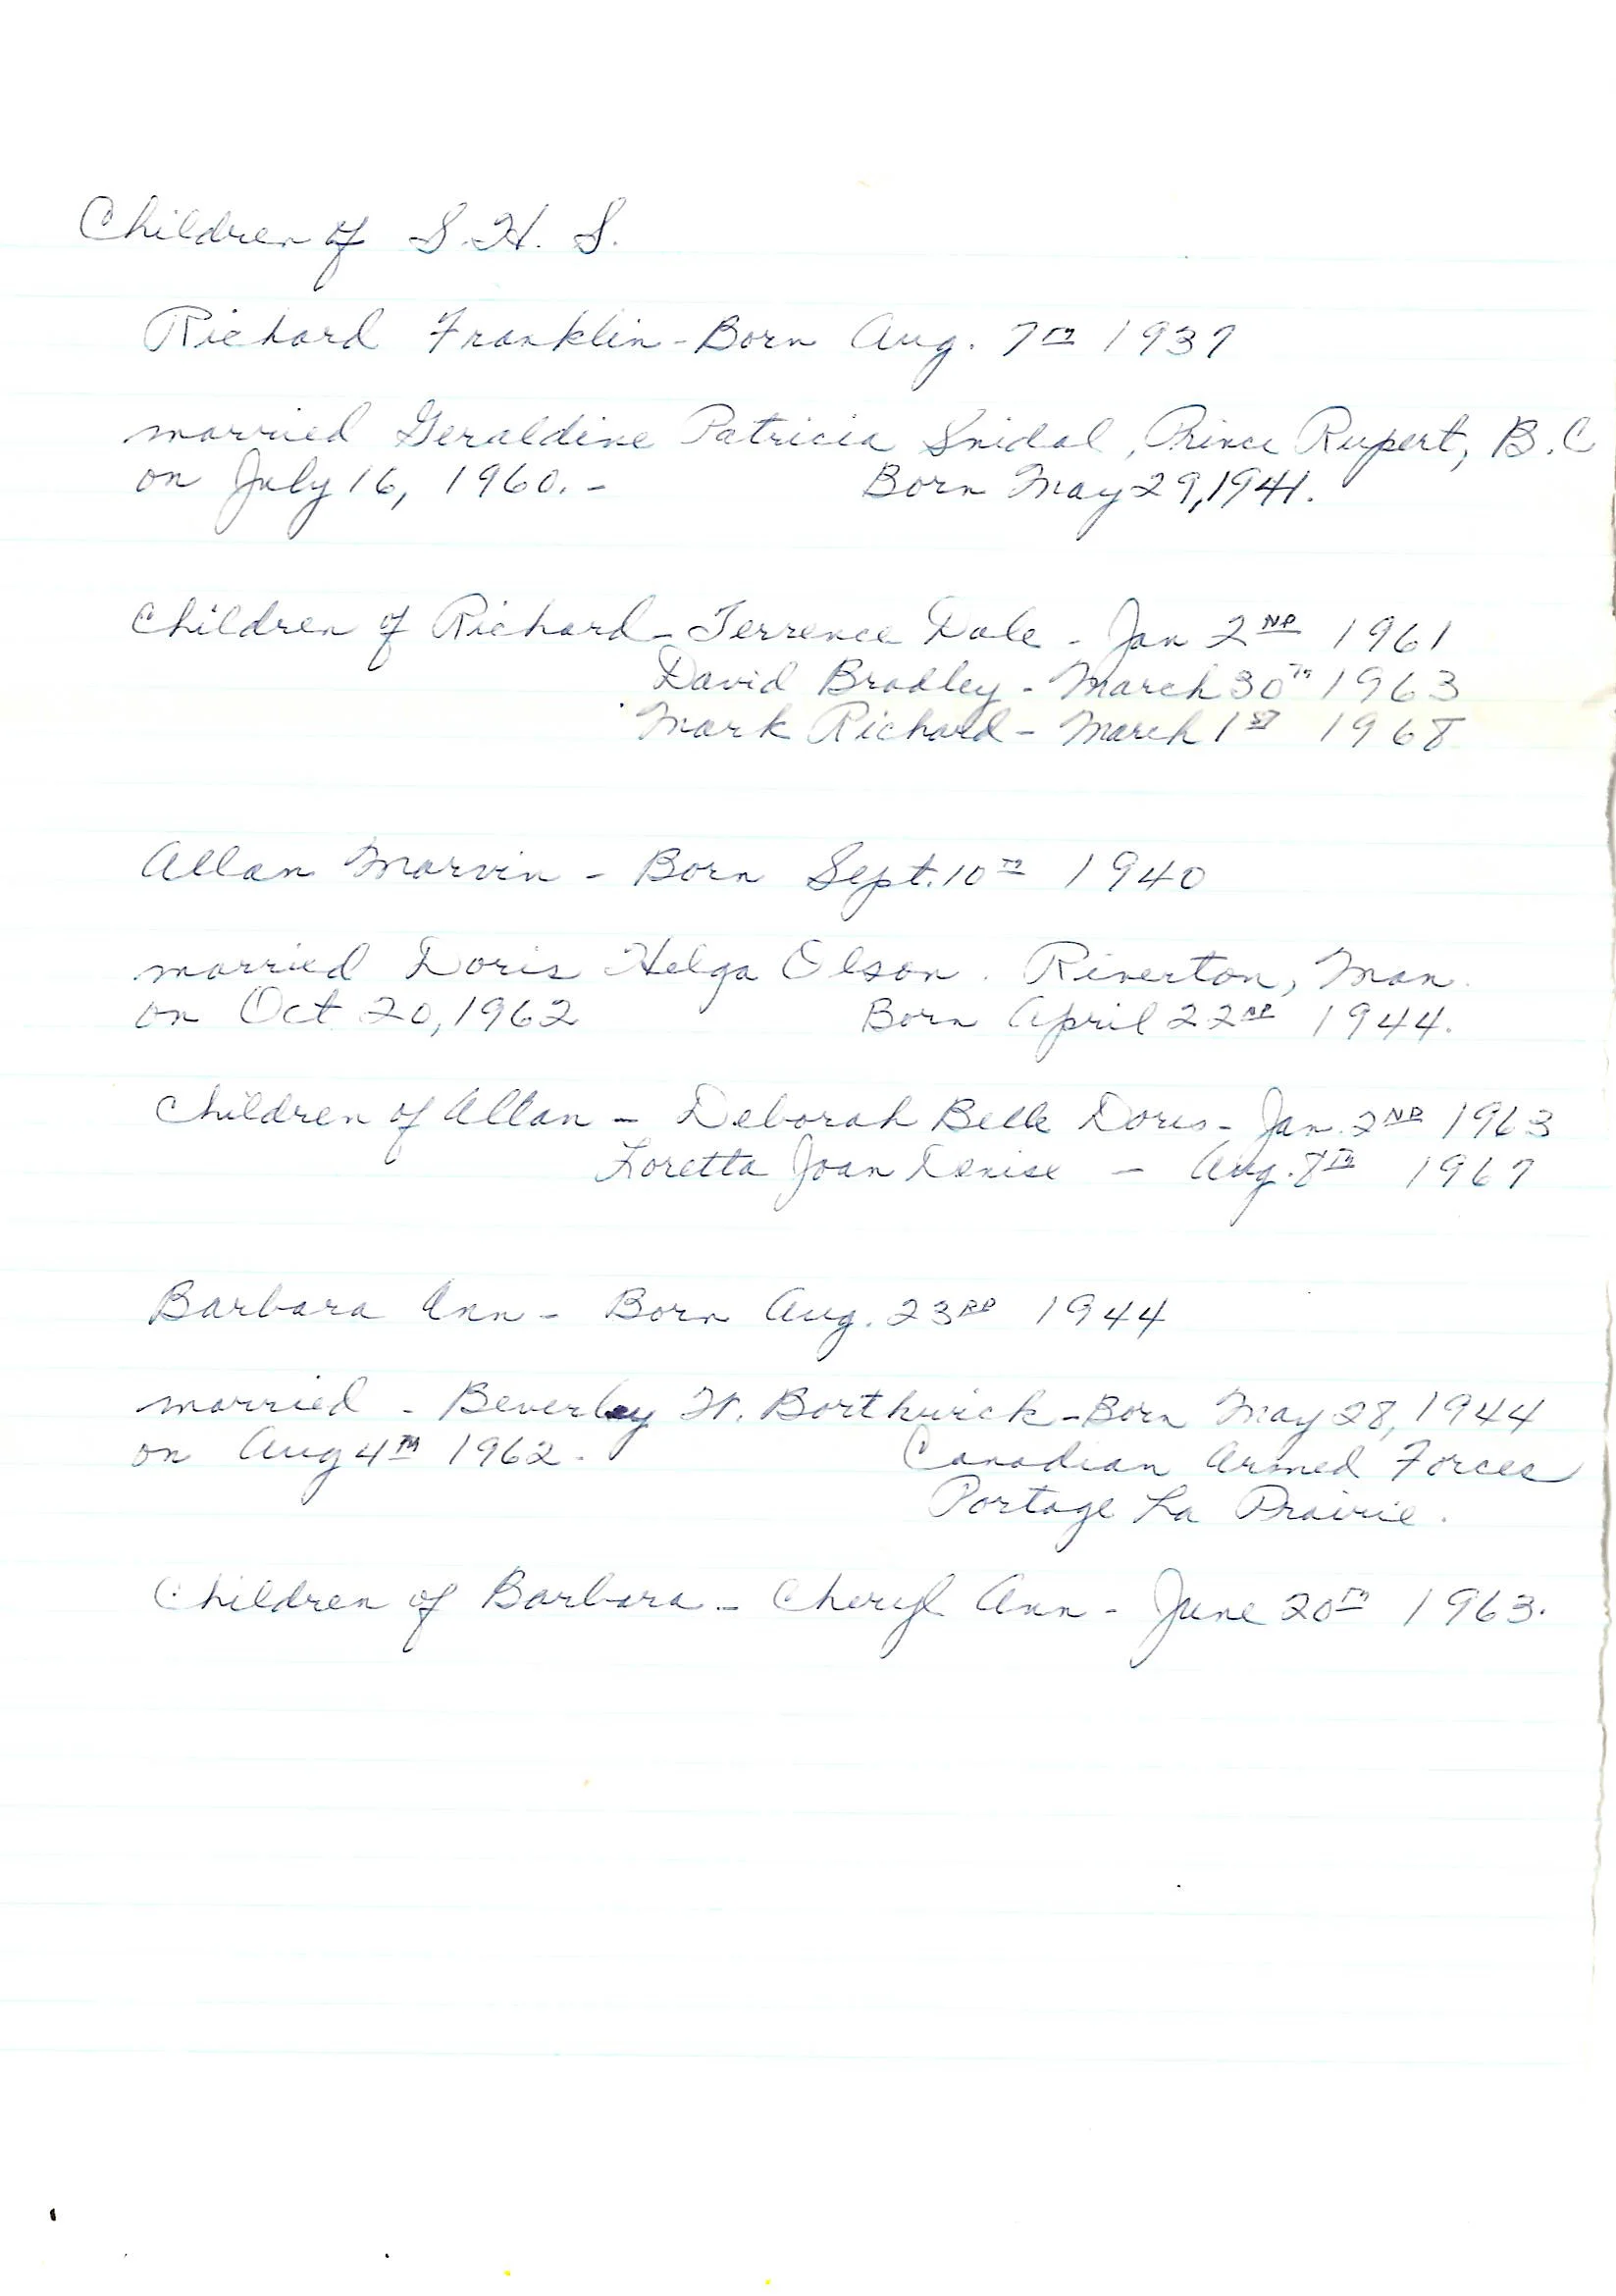 Children of S. H. S.
Richard Franklin - Born Aug. 7TH 1937
married Geraldine Patricia Snidal, Prince Rupert, B.C
on July 16, 1960. - Born May 29, 1941.
Children of Richard - Terrence Dale - Jan 2ND 1961
David Bradley - March 30TH 1963
Mark Richard - March 1ST 1968
Allan Marvin - Born Sept. 10TH 1940
married Doris Helga Olson. Riverton, Man.
on Oct 20, 1962 Born April 22ND 1944.
Children of Allan - Deborah Belle Doris - Jan. 2ND 1963
Loretta Joan Denise - Aug. 8TH 1967
Barbara Ann - Born Aug. 23RD 1944
married - Beverley W. Borthwick - Born May 28, 1944
on Aug 4TH 1962. Canadian Armed Forces
Portage La Prairie.
Children of Barbara - Cheryl Ann - June 20TH 1963.